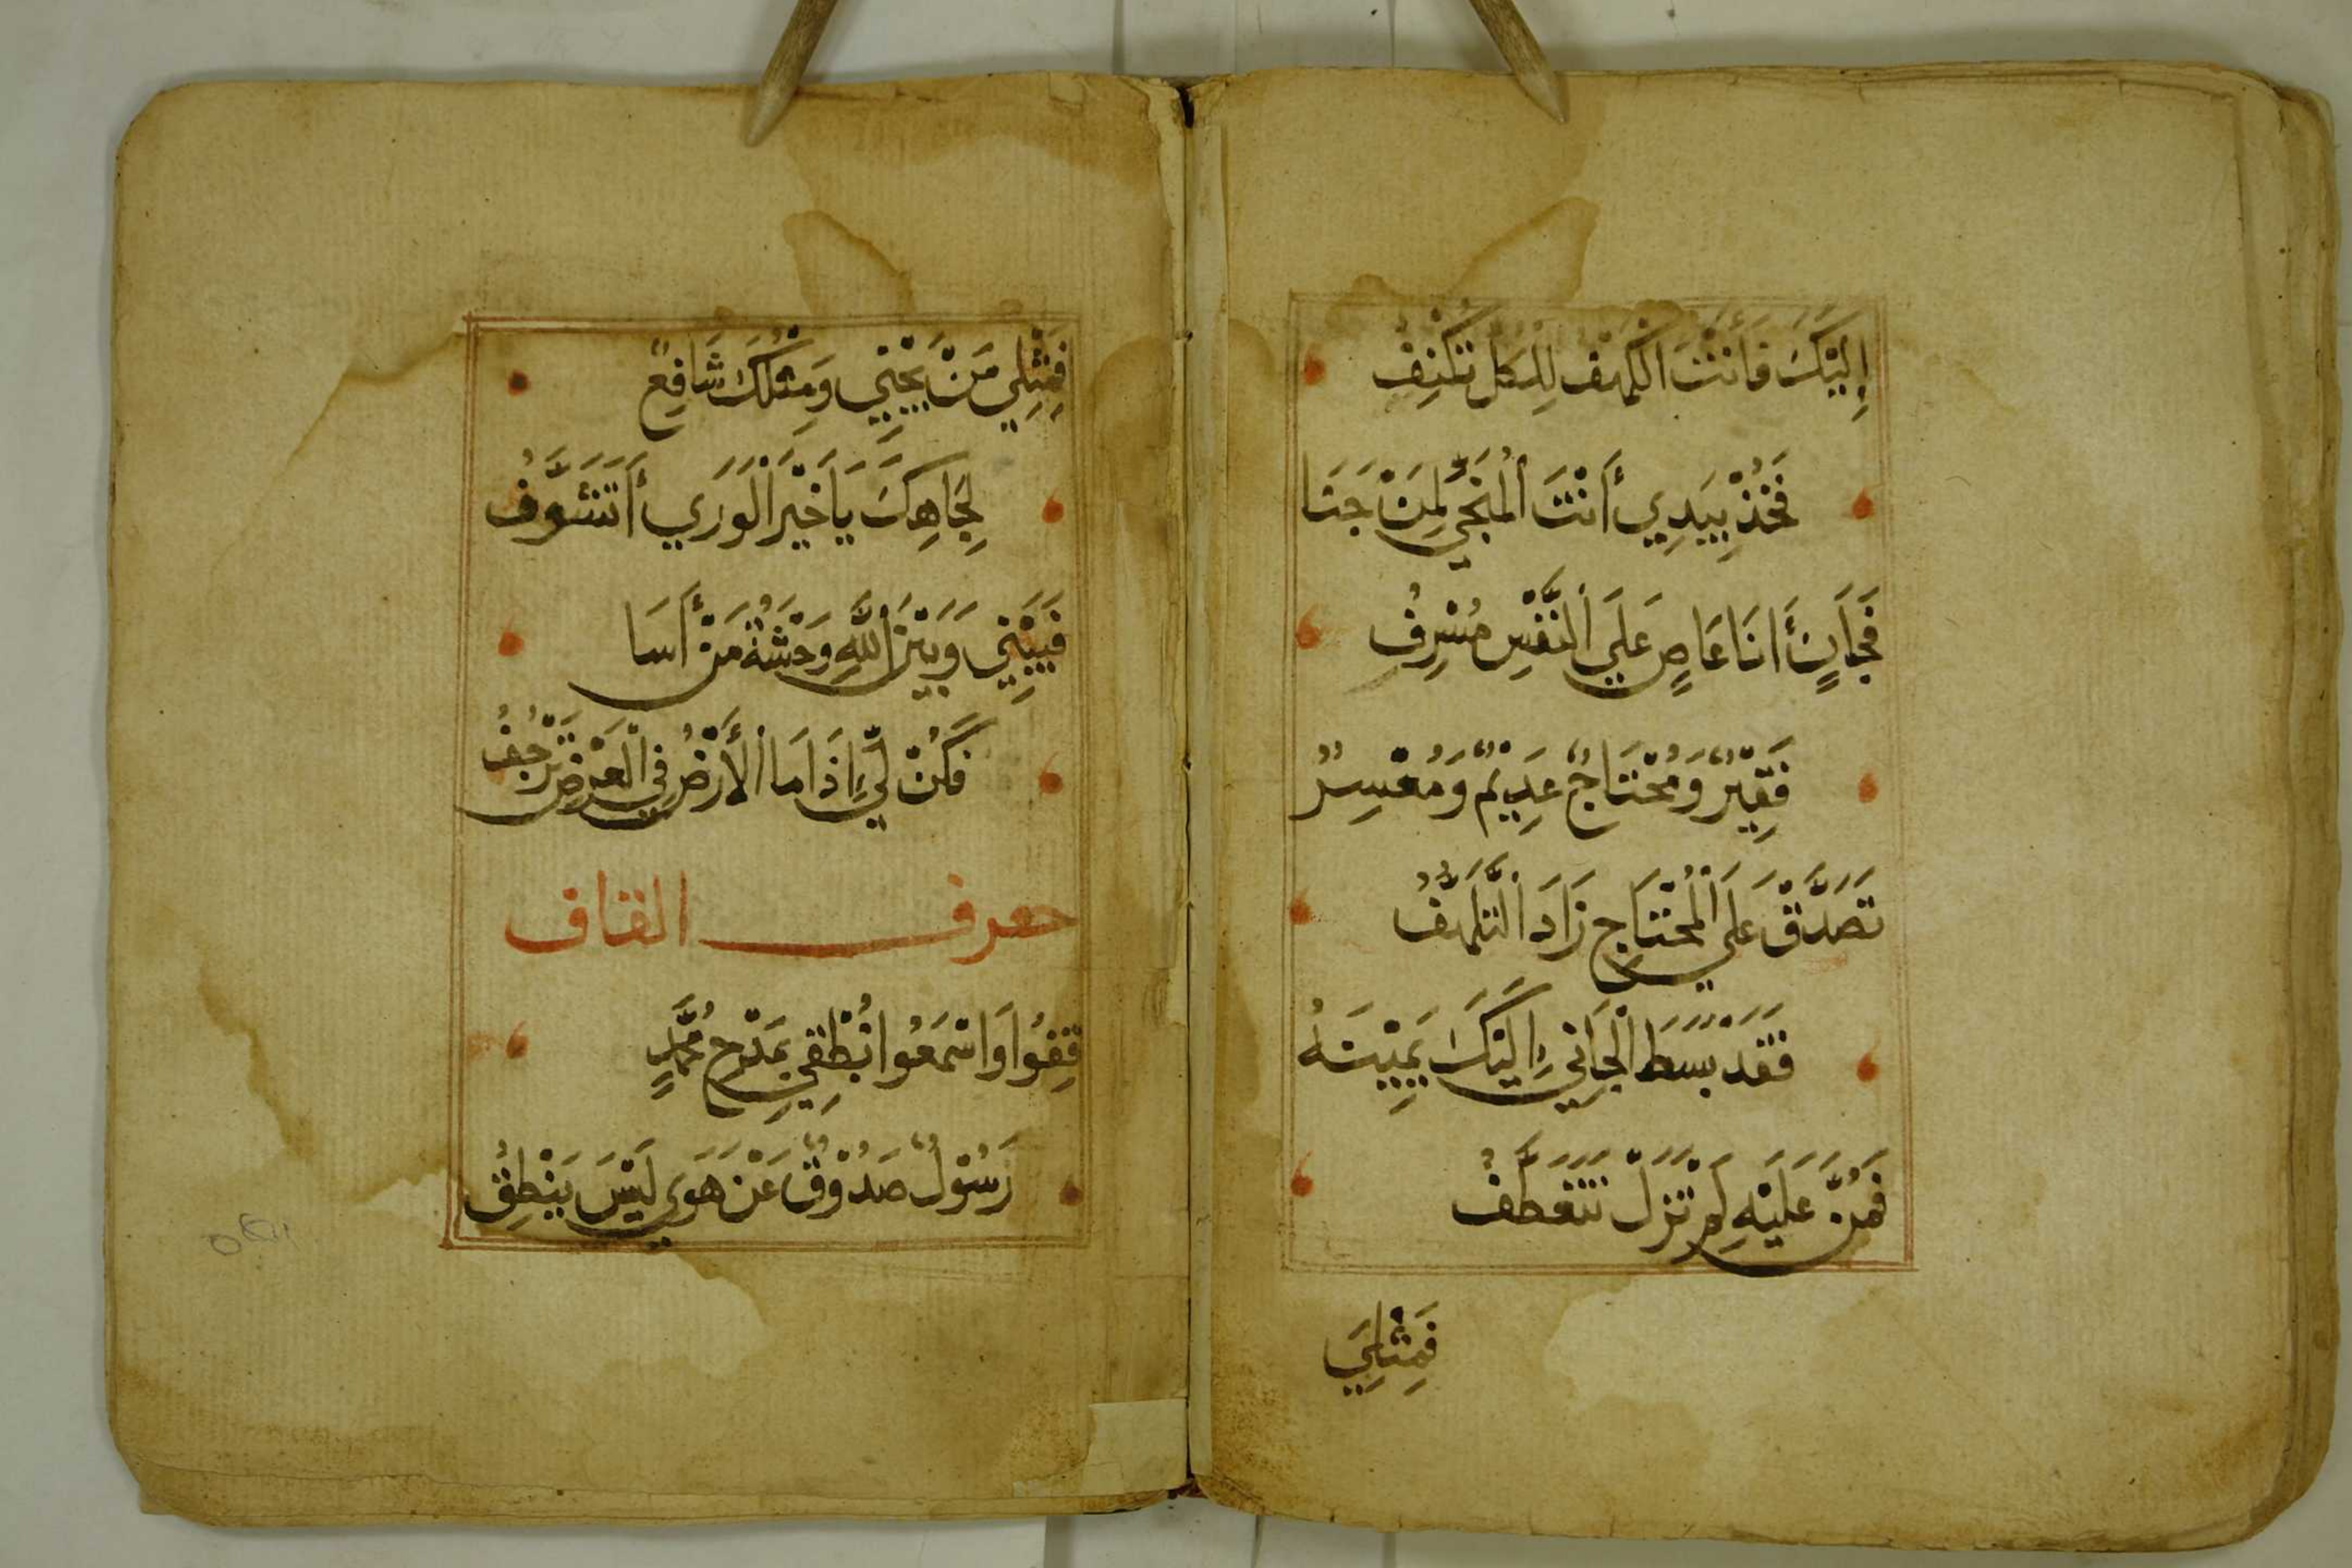 إِلَيْكَ فَأَنْتَ الْكَهْفُ لِلْكُلِّ تَكْنِفُ
فَخُذْ بِيَدِي أَنْتَ الْمُنَجِّي لِمَنْ جَنَا
فَجَانٍ أَنَا عَاصٍ عَلَى النَّفْسِ مُسْرِفُ
فَقِيْرٌ وَمُحْتَاجٌ عَدِيْمٌ وَمُعْسِرٌ
تَصَدَّقْ عَلَى الْمُحْتَاجِ زَادَ التَّلَهُّفُ
فَقَدْ بَسَطَ الْجَانِي إِلَيْكَ يَمِيْنَهُ
فَمُنَّ عَلَيْهِ لَمْ تَزَلْ تَتَعَطَّفُ
فَمِثْلِيَ
فَمِثْلِي مَنْ يَجْنِي وَمِثْلُكَ شَافِعٌ
لِجَاهِكَ يَا خَيْرَ الْوَرَي أَتَشَوَّفُ
فَبَيْنِي وَبَيْنَ اللَّهِ وَحْشَةُ مَنْ أَسَا
فَكُنْ لِي إِذَا مَا الْأَرْضُ فِي الْعَرْضِ تَرْجُفُ
حرف القاف
قِفُوا وَاسْمَعُوا نُطْقِي بِمَدْحِ مُحَمَّدٍ
رَسُوْلٌ صَدُوْقٌ عَنْ هَوَي لَيْسَ يَنْطِقُ